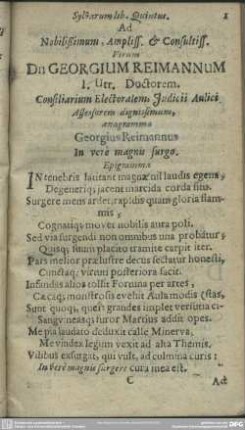 Sylvarum lib. Quintus. 1
Ad
Nobilissimum, Ampliss. & Consultiss.
Virum
Dn GEORGIUM REIMANNUM
I. Utr. Doctorem.
Consiliarium Electoralem, Judicii Aulici
Assessorem dignissimum,
anagramma
Georgius Reimannus
In verè magnis surgo.
Epigramma
IN tenebris lauitant magnæ nil laudis egens,
Degeneriq; jacent marcida corda situ.
Surgere mens ardet, rapidis quam gloria flam-
mis,
Cognatiq; movet nobilis aura poli.
Sed via surgendi non omnibus una probatur,
Quisq; suum placito tramite carpit iter.
Pars melior præ lustre decus sectatur honesti,
Cunctaq; virtuti posteriora facit.
Infandis alios tollit Fortuna per artes,
Cæcaq; monstrosis evehit Aula modis
Sunt quoqi, quest grandes implet versutia
Sangvineasq; furor Martius addit opes.
Me pia laudato deduxit calle Minerva,
Me vindex legum vexit ad alta Themis.
Vilibus exsurgat, qui vult, ad culmina curis:
In verè magnis surgere cura mea est.
C Ad